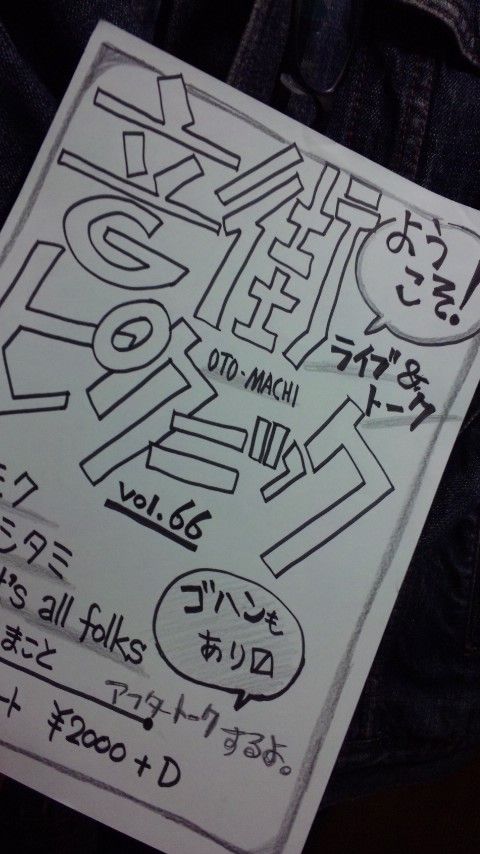 音街
ピクニック
OTO-MACHI
ようこそ!
ライブ&
トーク
vol.66
モク
シタミ
's all folks
まこと
ゴハンも
あり〼
アフタートーク
するよ。
ート ¥2000+D